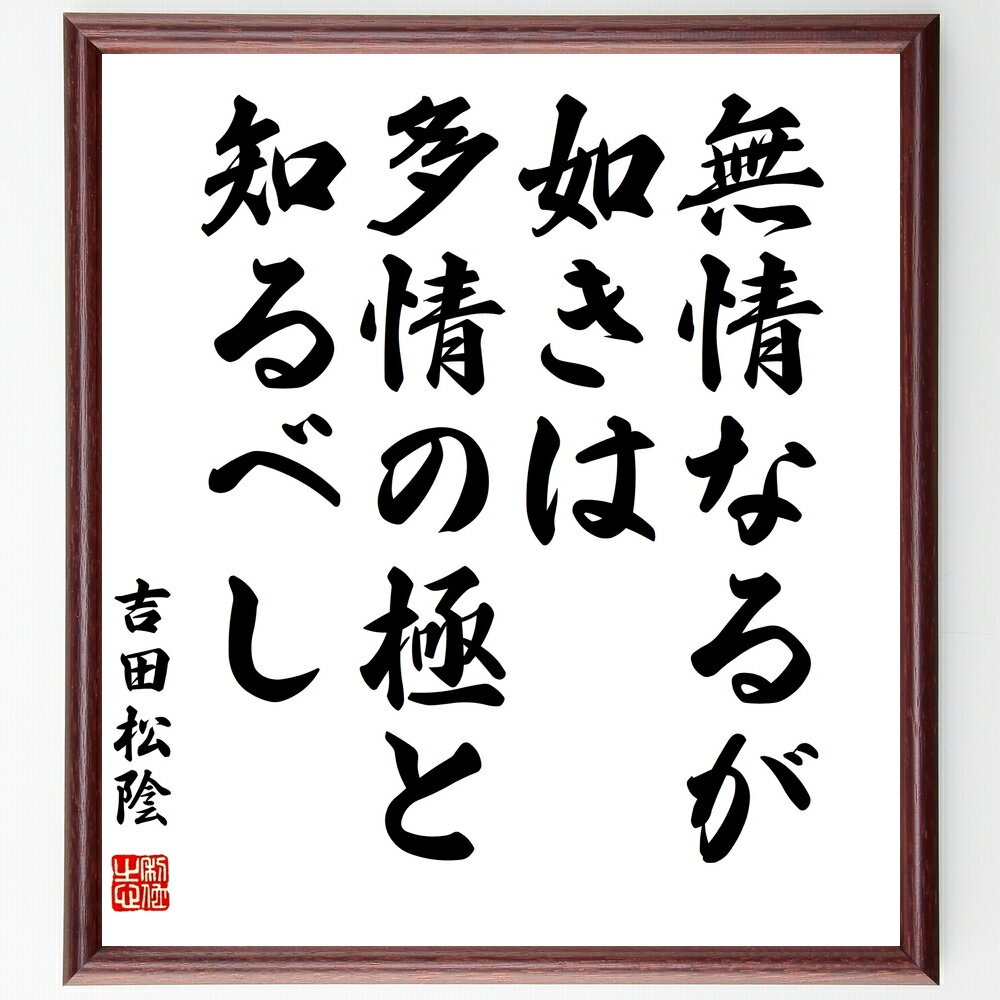 無情なるが
如きは
多情の極と
知るべし
吉田松陰